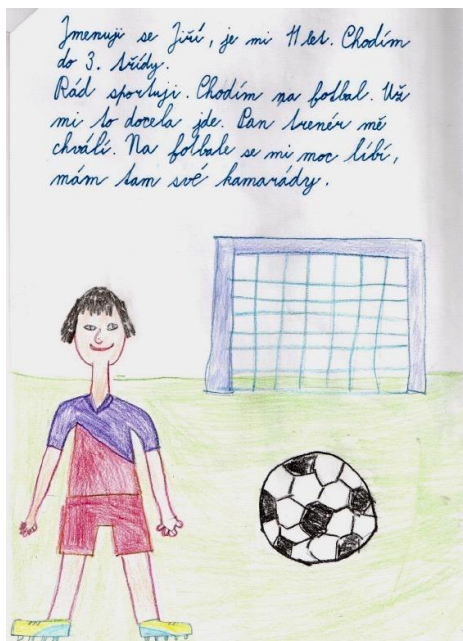 Jmenuji se Jiří, je mi 11 let. Chodím
do 3. třídy.
Rád sportuji. Chodím na fotbal. Už
mi to docela jde. Pan trenér mě
chválí. Na fotbale se mi moc líbí,
mám tam své kamarády.